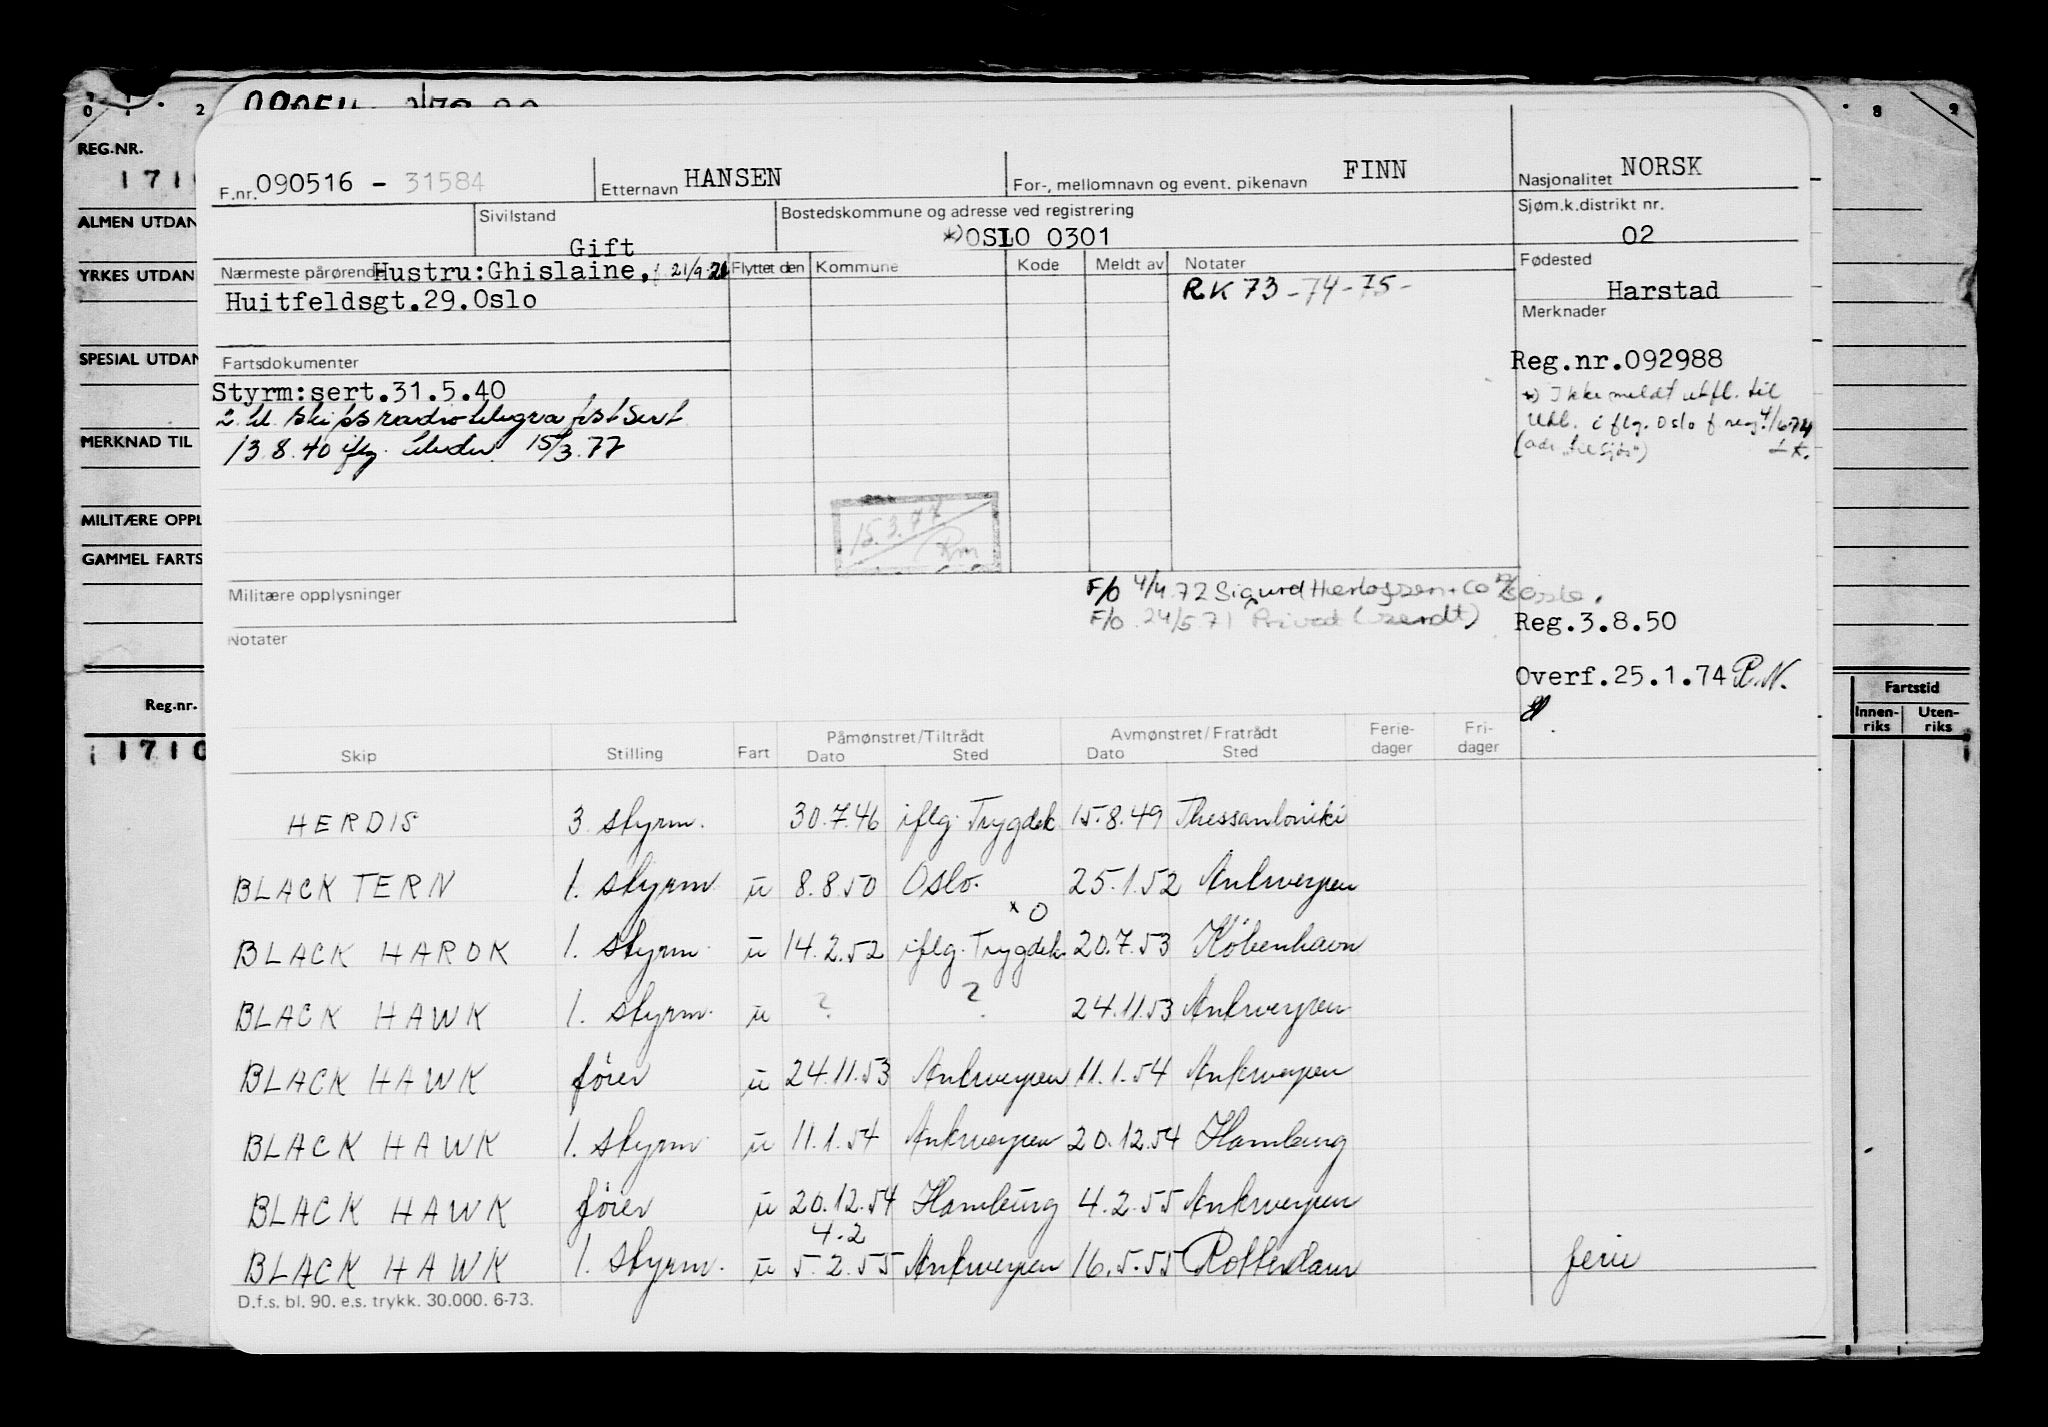 REG.NR.
1710
ALMEN UTDAN
YRKES UTDAN
SPESIAL UTDAN
MERKNAD TIL
MILITÆRE OPPL
GAMMEL FARTS
Reg.nr.
1710
8 9
Fartstid
Innen-riks Uten-riks
F.nr. 090516 - 31584 Etternavn HANSEN For-, mellomnavn og event. pikenavn FINN Nasjonalitet NORSK
Sivilstand Gift Bostedskommune og adresse ved registrering *) OSLO 0301 Sjøm.k.distrikt nr. 02
Nærmeste pårørende Hustru:Ghislaine, f 21/9-21 Flyttet den Kommune Kode Meldt av Notater Fødested
Huitfeldsgt.29.Oslo RK 73-74-75- Harstad
Merknader
Fartsdokumenter Reg.nr.092988
Styrm:sert.31.5.40 *) Ikke meldt utfl. til
2. kl. skipsradiotelegrafistsert utl. iflg. Oslo f reg. 4/6-74
13.8.40 iflg. 15/3.77 (adr "til sjøs")
15.3.77 Rm
Militære opplysninger F/O 4/4.72 Sigurd Herlofsen + Co Oslo.
F/O 24/5.71 Privat Reg.3.8.50
Notater
Overf.25.1.74 R.N.
Skip Stilling Fart Påmønstret/Tiltrådt Dato Sted Avmønstret/Fratrådt Dato Sted Ferie-dager Fri-dager
HERDIS 3. styrm. 30.7.46 iflg. Trygdek 15.8.49 Thessanloniki
BLACK TERN 1. styrm u 8.8.50 Oslo. 25.1.52 Antwerpen
x O
BLACK HAROK 1. styrm. u 14.2.52 iflg. Trygdek. 20.7.53 København
BLACK HAWK 1. styrm. u ? ? 24.11.53 Antwerpen
BLACK HAWK fører u 24.11.53 Antwerpen 11.1.54 Antwerpen
BLACK HAWK 1. styrm u 11.1.54 Antwerpen 20.12.54 Hamburg
BLACK HAWK fører u 20.12.54 Hamburg 4.2.55 Antwerpen
4.2
BLACK HAWK 1. styrm. u 5.2.55 Antwerpen 16.5.55 Rotterdam ferie
D.f.s. bl. 90. e.s. trykk. 30.000. 6-73.